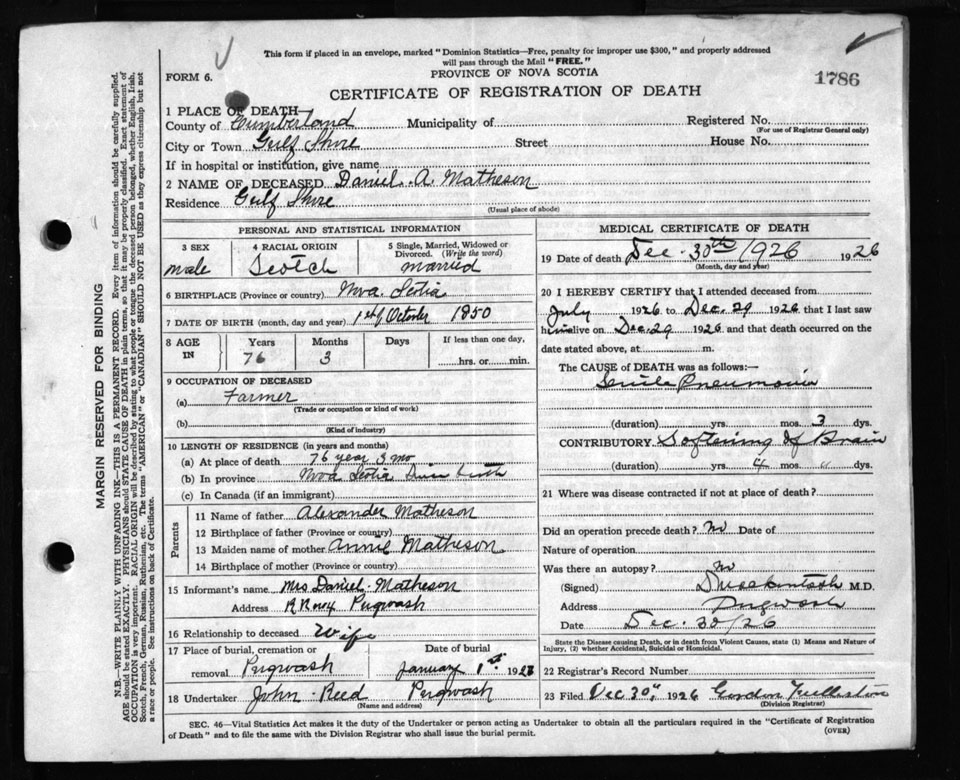 This form if placed in an envelope, marked "Dominion Statistics—Free, penalty for improper use $300," and properly addressed
will pass through the Mail "FREE."
FORM 6.
PROVINCE OF NOVA SCOTIA
1786
CERTIFICATE OF REGISTRATION OF DEATH
1 PLACE OF DEATH—
County of Cumberland Municipality of Registered No.
(For use of Registrar General only)
City or Town Gulf Shore Street House No.
If in hospital or institution, give name
2 NAME OF DECEASED Daniel A. Matheson
Residence Gulf Shore
(Usual place of abode)
MARGIN RESERVED FOR BINDING
N.B.—WRITE PLAINLY, WITH UNFADING INK—THIS IS A PERMANENT RECORD. Every item of information should be carefully supplied.
AGE should be stated EXACTLY. PHYSICIANS should STATE CAUSE OF DEATH in plain terms, so that it may be properly classified. Exact statement of
OCCUPATION is very important. RACIAL ORIGIN will be described by stating to what people or tongue the deceased person belonged, whether English, Irish,
Scotch, French, German, Russian, Ruthenian, etc. The terms "AMERICAN" or "CANADIAN" SHOULD NOT BE USED as they express citizenship but not
a race or people. See instructions on back of Certificate.
PERSONAL AND STATISTICAL INFORMATION
3 SEX
male
4 RACIAL ORIGIN
Scotch
5 Single, Married, Widowed or
Divorced. (Write the word)
married
6 BIRTHPLACE (Province or country) Nova Scotia
7 DATE OF BIRTH (month, day and year) 1st of October 1850
8 AGE
IN
Years
76
Months
3
Days
If less than one day,
hrs. or min.
9 OCCUPATION OF DECEASED
(a) Farmer
(Trade or occupation or kind of work)
(b)
(Kind of industry)
10 LENGTH OF RESIDENCE (in years and months)
(a) At place of death 76 year 3 mo
(b) In province Nova Scotia Since birth
(c) In Canada (if an immigrant)
Parents
11 Name of father Alexander Matheson
12 Birthplace of father (Province or country)
13 Maiden name of mother Annie Matheson
14 Birthplace of mother (Province or country)
15 Informant's name Mrs Daniel Matheson
Address Pugwash
16 Relationship to deceased Wife
17 Place of burial, cremation or
removal Pugwash
Date of burial
January 1st 1927
18 Undertaker John Reed Pugwash
(Name and address)
MEDICAL CERTIFICATE OF DEATH
19 Date of death Dec. 30th 1926 1926
(Month, day and year)
20 I HEREBY CERTIFY that I attended deceased from
July 1926 to Dec. 29 1926 that I last saw
him alive on Dec. 29 1926 and that death occurred on
date stated above, at m.
The CAUSE of DEATH was as follows:—
Senile Pneumonia
(duration) yrs. mos. 3 dys.
CONTRIBUTORY Softening of Brain
(duration) yrs. 4 mos. " dys.
21 Where was disease contracted if not at place of death?
Did an operation precede death? No Date of
Nature of operation
Was there an autopsy? No
(Signed) M.D.
Address Pugwash
Date Dec. 30/26
State the Disease causing Death, or in death from Violent Causes, state (1) Means and Nature of
Injury, (2) whether Accidental, Suicidal or Homicidal.
22 Registrar's Record Number
23 Filed Dec 30th 1926 Gordon
(Division Registrar)
SEC. 46—Vital Statistics Act makes it the duty of the Undertaker or person acting as Undertaker to obtain all the particulars required in the "Certificate of Registration
of Death" and to file the same with the Division Registrar who shall issue the burial permit.
(OVER)